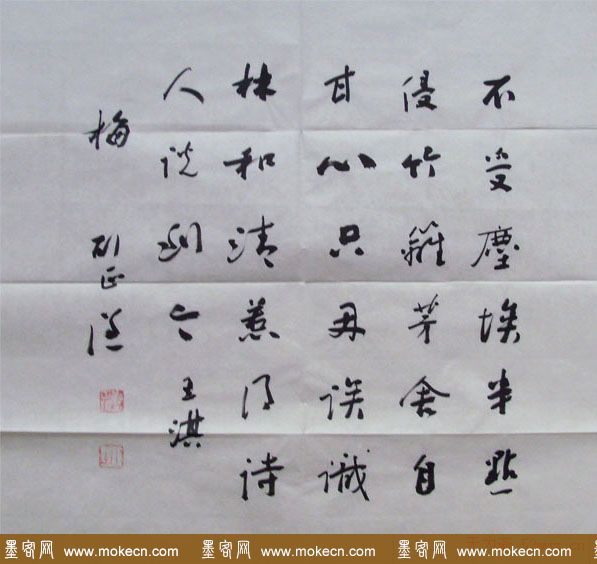 不受塵埃半點
侵竹籬茅舍自
甘心只因誤識
林和清惹得詩
人說到今 王淇
梅
墨客网 www.mokecn.com 墨客网 www.mokecn.com 墨客网 www.mokecn.com